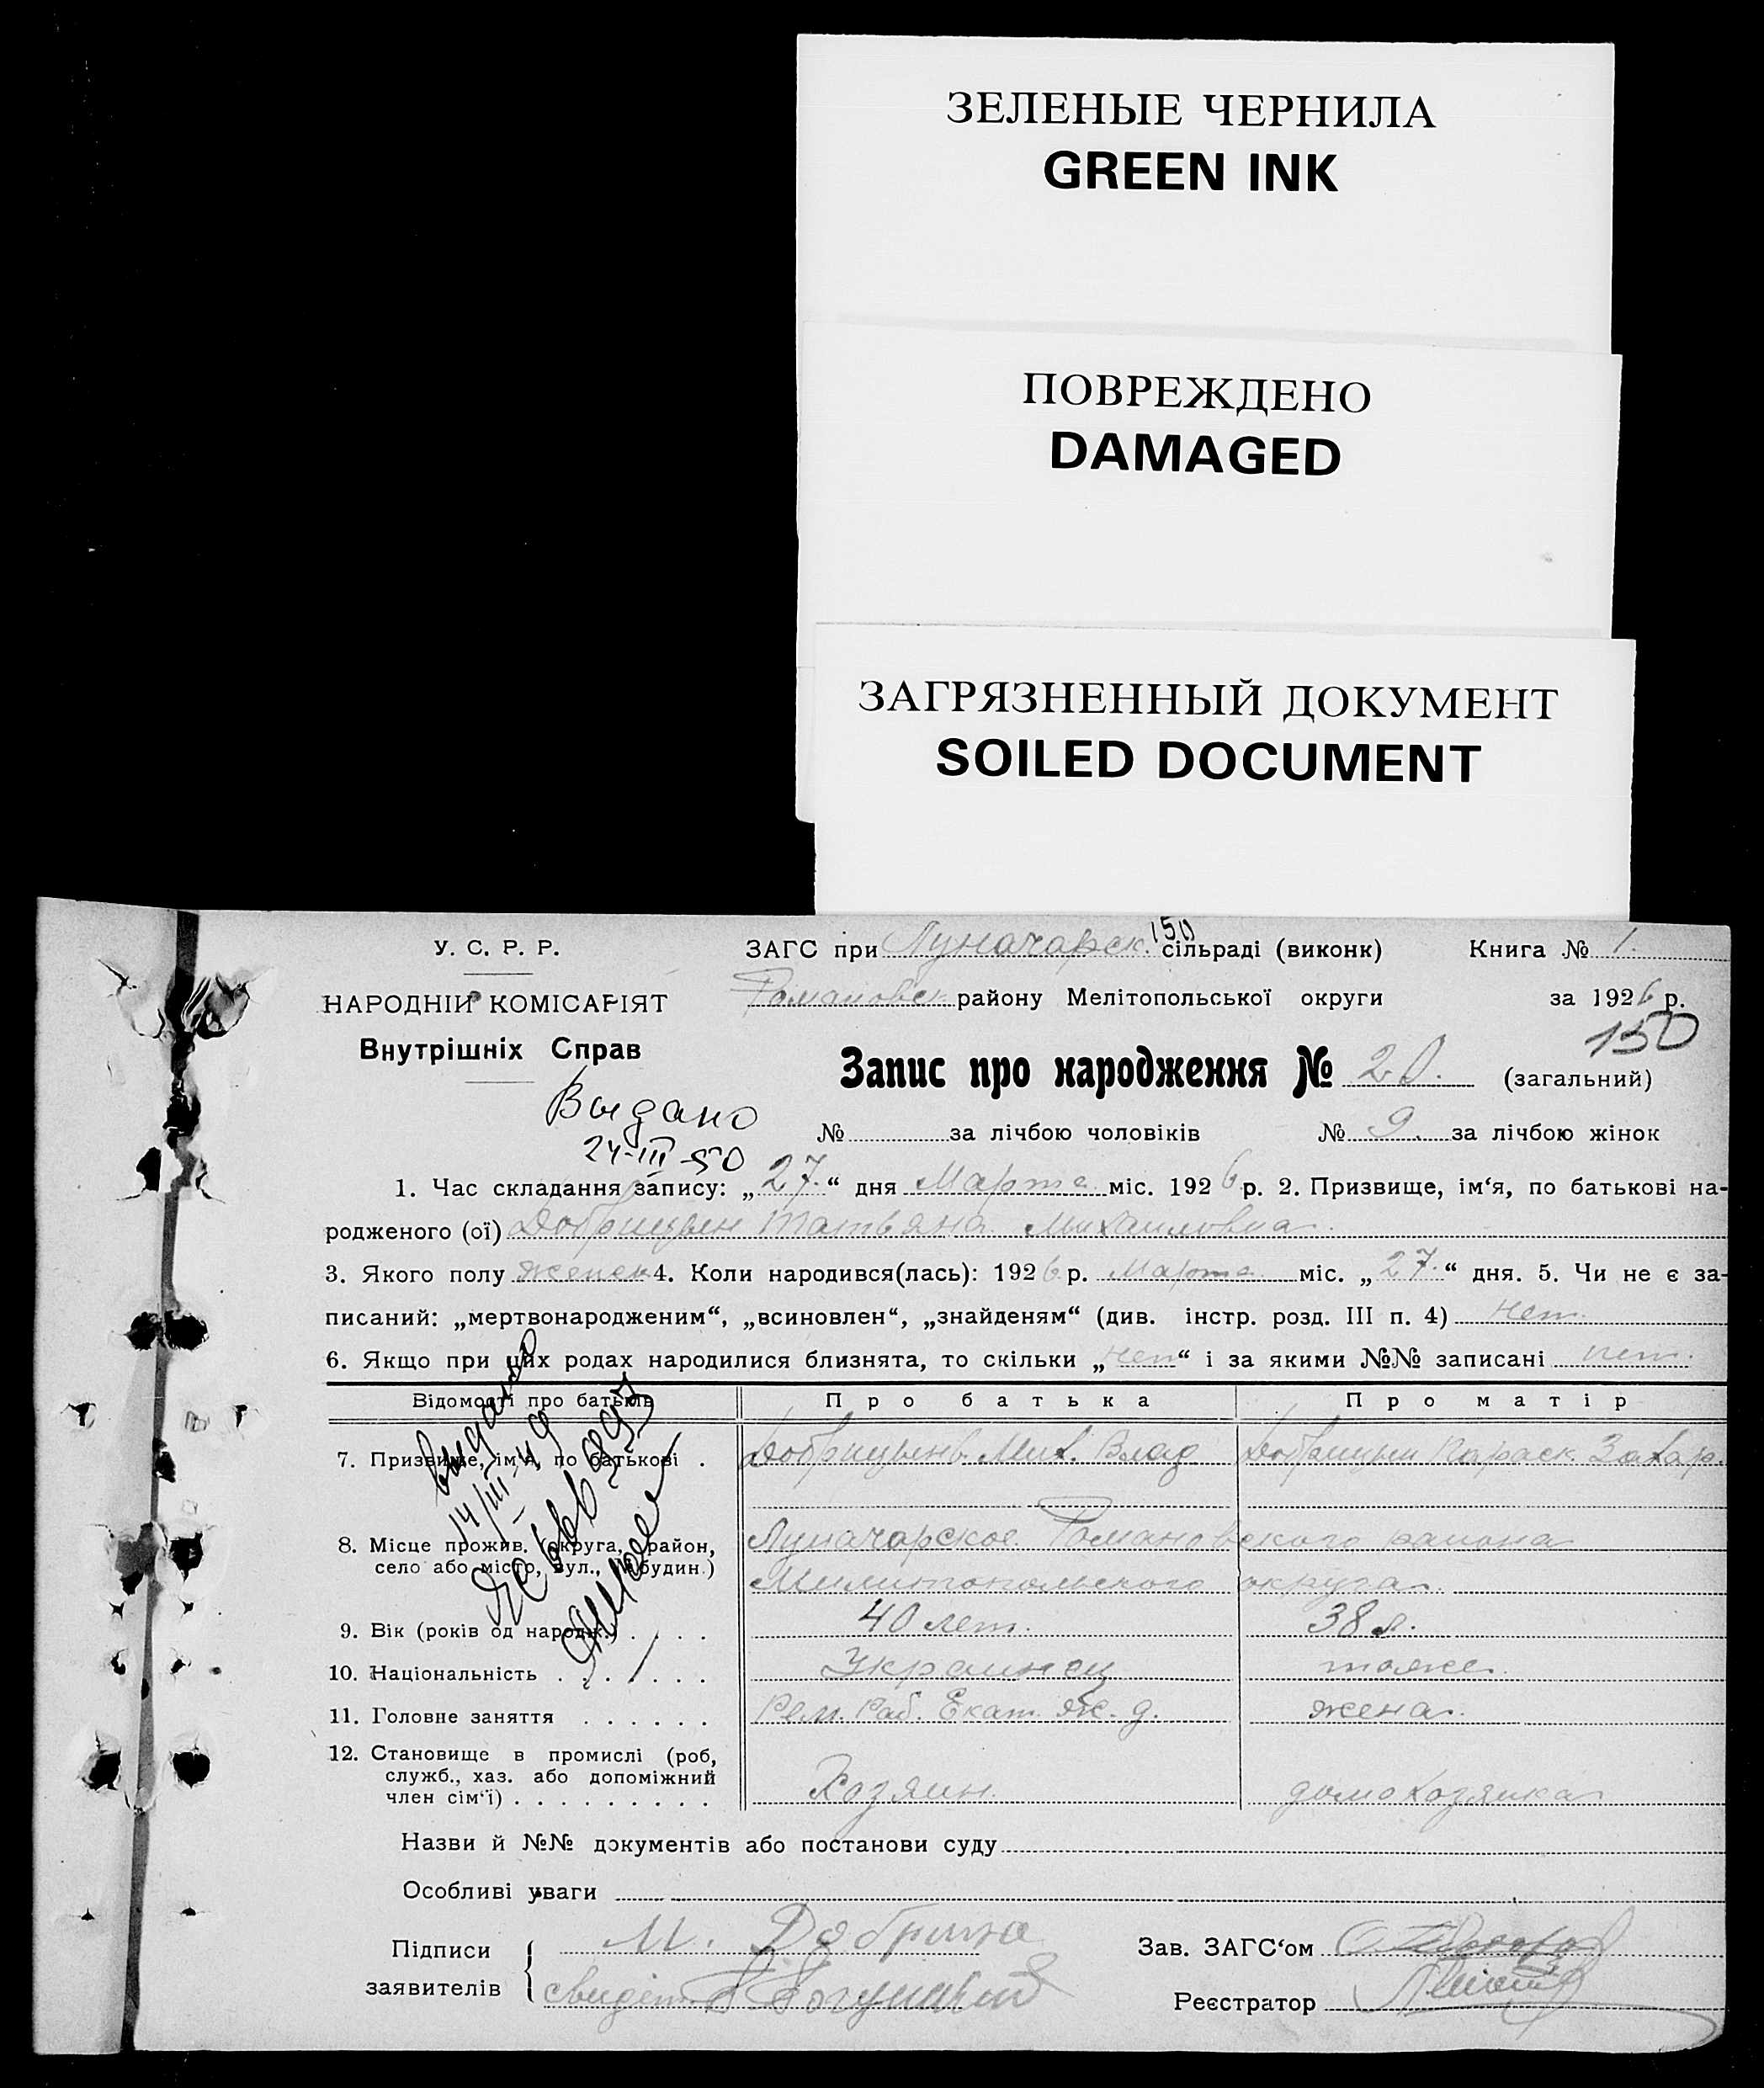 ЗЕЛЕНЫЕ ЧЕРНИЛА
GREEN INK
ПОВРЕЖДЕНО
DAMAGED
ЗАГРЯЗНЕННЫЙ ДОКУМЕНТ
SOILED DOCUMENT
150
У. С. Р. Р.
ЗАГС при Луначарск. сільраді (виконк) Книга № 1.
НАРОДНІЙ КОМІСАРІЯТ
Романовск району Мелітопольської округи за 1926 р.
150
Внутрішніх Справ
Запис про народження № 20. (загальний)
Выдано
24-III-50
№ за лічбою чоловіків № 9. за лічбою жінок
1. Час складання запису: „27.“ дня Марта міс. 1926 р. 2. Призвище, ім‘я, по батькові на-
родженого (ої) Добрицын Татьяна Михаиловна.
3. Якого полу женск 4. Коли народився(лась): 1926 р. Марта міс. „27.“ дня. 5. Чи не є за-
писаний: „мертвонародженим“, „всиновлен“, „знайденям“ (див. інстр. розд. III п. 4) нет.
6. Якщо при цих родах народилися близнята, то скільки „нет“ і за якими №№ записані нет.
Відомості про батьків Про батька Про матір
выдано
14/III-49
7. Призвище, ім‘я, по батькові . Добрицынъ Мих. Влад Добрицын Параск. Захар.
8. Місце прожив. (округа, район, Луначарское Романовского района
село або місто, вул., № будин.) Милитопольского округа.
9. Вік (років од народж.) . . . . 40 лет. 38 л.
10. Національність . . . . . . Украинец тоже.
11. Головне заняття . . . . . . Рем. Раб. Екат. ж. д. жена.
12. Становище в промислі (роб,
служб., хаз. або допоміжний
член сім‘ї) . . . . . . . . . Хозяин. домохозяика
Назви й №№ документів або постанови суду
Особливі уваги
Підписи М. Зав. ЗАГС‘ом
заявителів свидет. Реєстратор